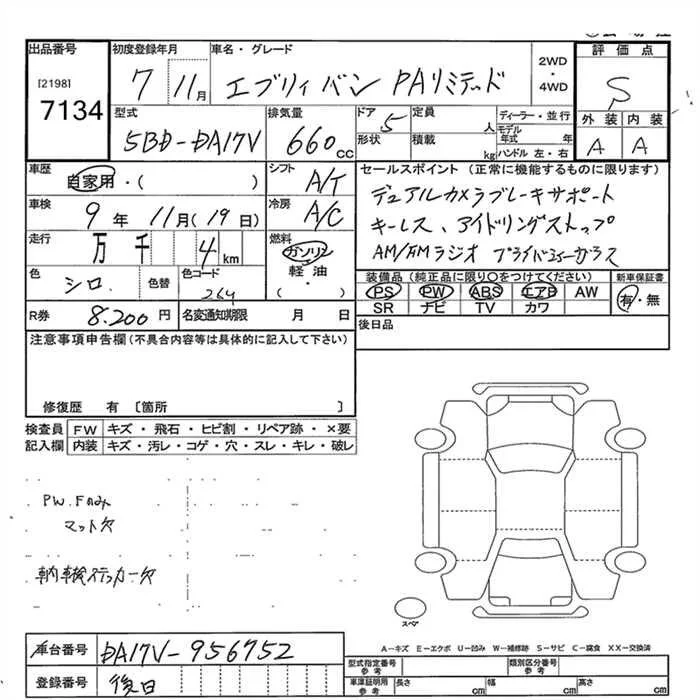 出品番号 初度登録年月 車名・グレード 2WD・4WD 評価点
[2198]
7134 7 11月 エブリィバン PAリミテッド S
型式 排気量 ドア 定員 人 ディーラー・並行 外装 内装
5BD-DA17V 660cc 5 形状 積載 kg モデル年式 年 ハンドル 左・右 A A
車歴 自家用・( ) シフト A/T セールスポイント (正常に機能するものに限ります)
車検 9年 11月(19日) 冷房 A/C デュアルカメラブレーキサポート
キーレス、アイドリングストップ
走行 万 千 4 km 燃料 ガソリン AM/FMラジオ プライバシーガラス
軽油
( )
色 シロ 色替 色コード 26U 装備品 (純正品に限り○をつけてください) 新車保証書
PS PW ABS エアB AW 有・無
SR ナビ TV カワ
R券 8.200円 名変通知期限 月 日 後日品
注意事項申告欄(不具合内容等は具体的に記入して下さい)
修復歴 有 〔箇所 〕
検査員 FW キズ・飛石・ヒビ割・リペア跡・×要
記入欄 内装 キズ・汚レ・コゲ・穴・スレ・キレ・破レ
PW.Fのみ
マット欠
車内車検ステッカー欠
スペア
A-キズ E-エクボ U-凹み W-補修跡 S-サビ C-腐食 XX-交換済
車台番号 DA17V-956752 型式指定番号 参考 類別区分番号 参考
登録番号 後日 車庫証明用 参考 長さ cm 幅 cm 高さ cm